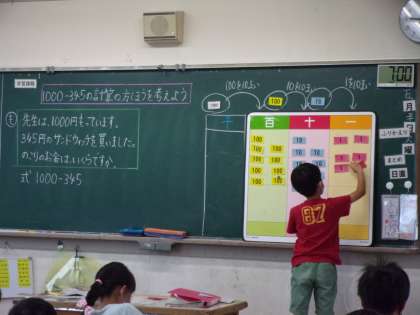 学習課題
1000-345の計算の方ほうを考えよう
先生は、1000円もっています。
345円のサンドウィッチを買いました。
のこりのお金は、いくらですか。
式 1000-345
100を10こ
10を10こ
1を10こ
100
10
千
百
十
一
100
100
100
100
100
100
100
100
100
10
10
10
10
1
1
1
1
1
87
7:00
月
曜
ふりかえり
まとめ
日直